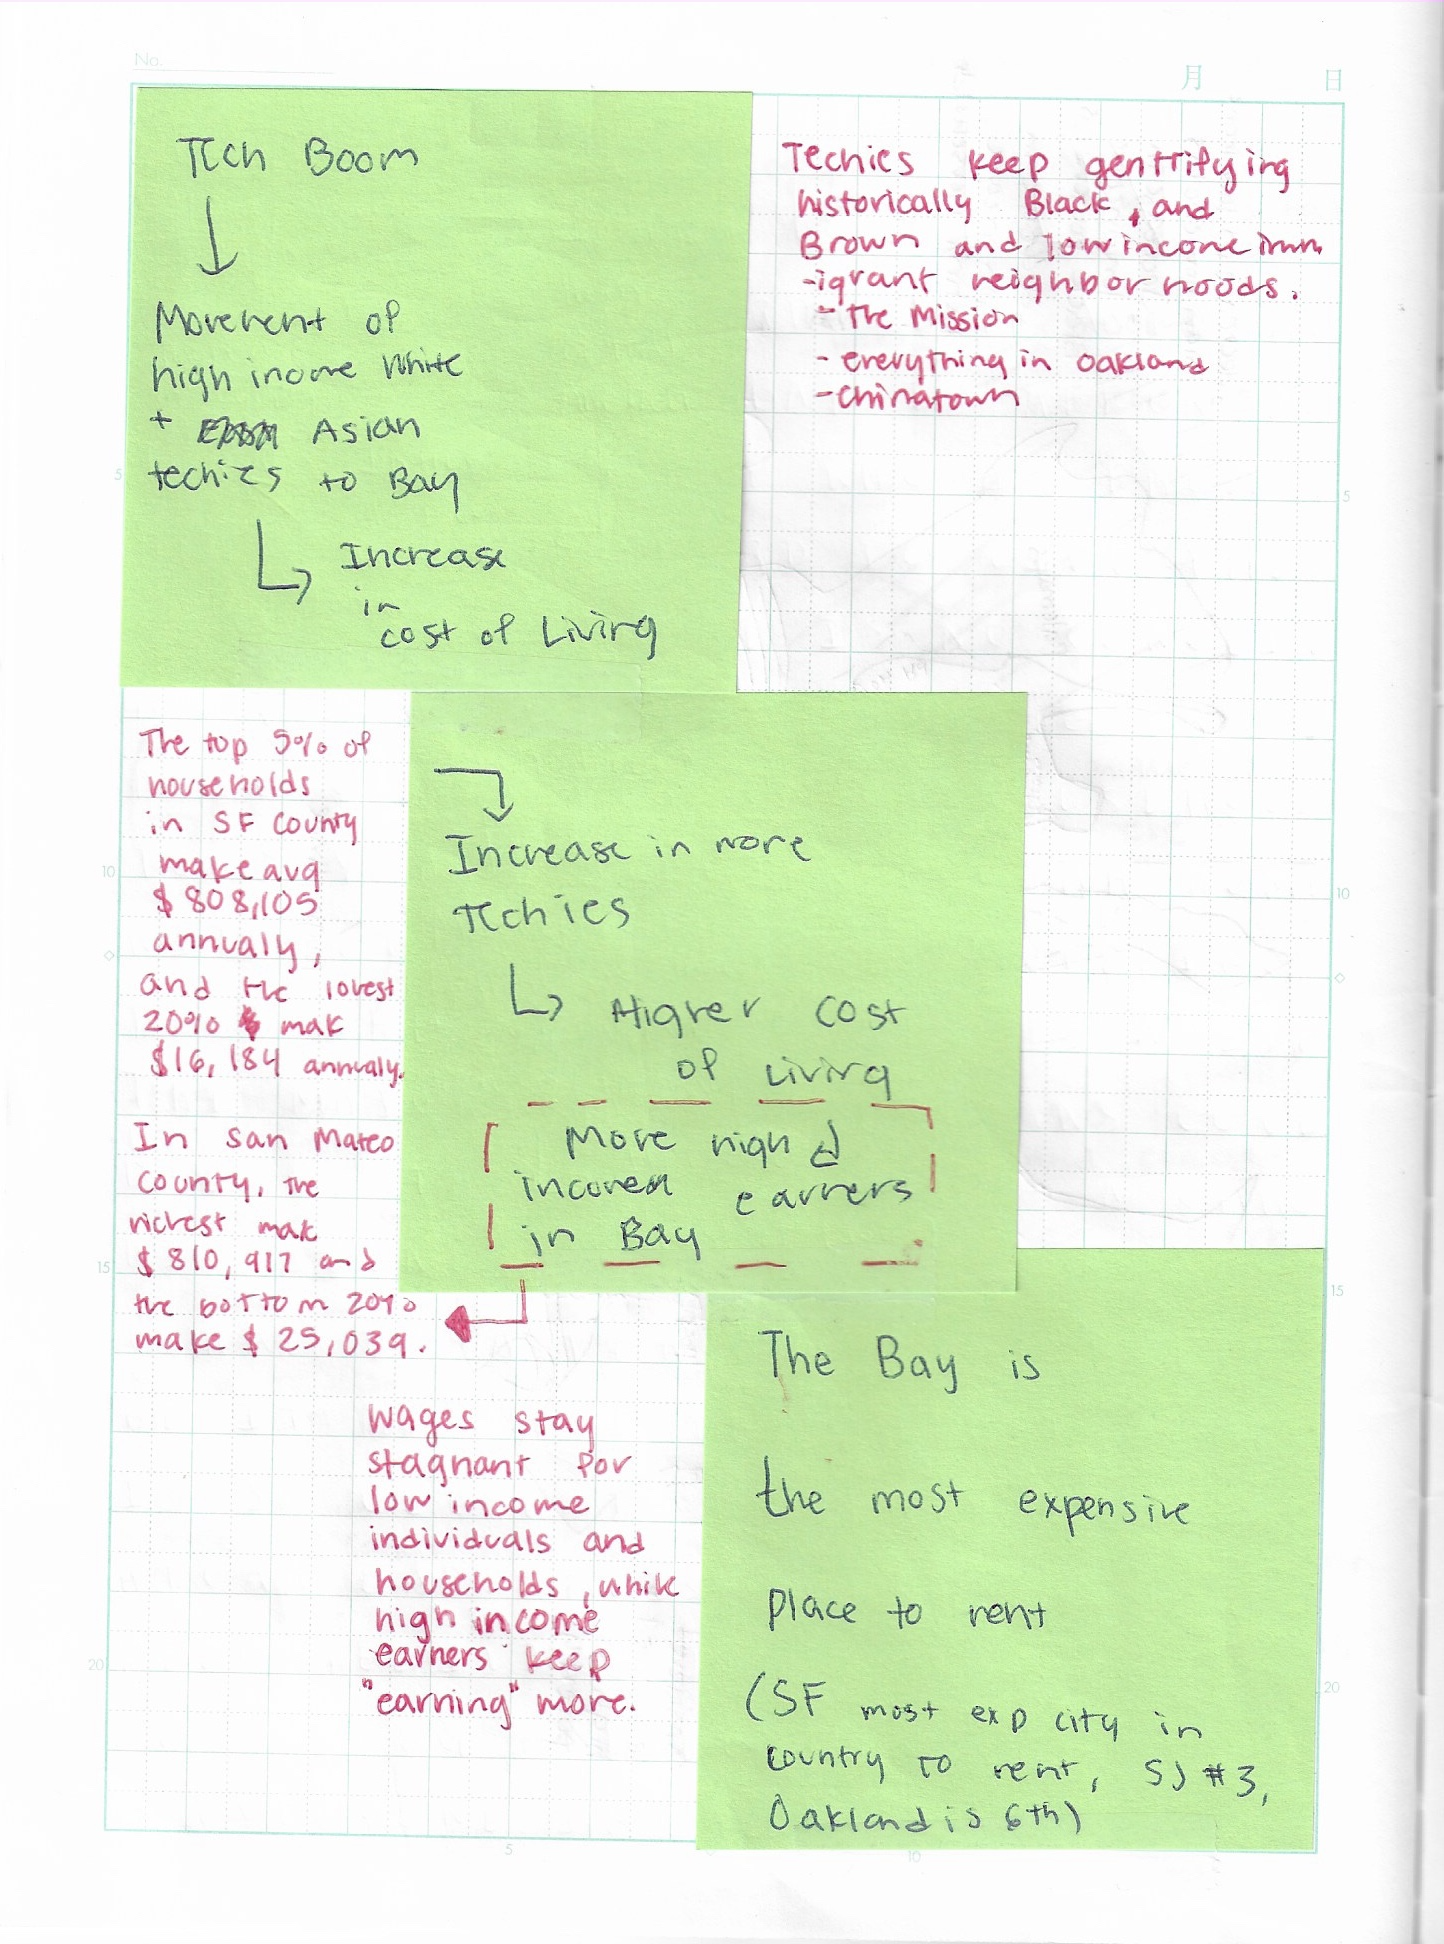 No.
月 日
Tech Boom
Movement of
high income White
+ Asian
techies to Bay
Increase
in
cost of Living
Techies keep gentrifying
historically Black, and
Brown and low income imm
-igrant neighborhoods.
- The Mission
- everything in Oakland
- Chinatown
The top 5% of
households
in SF County
make avg
$808,105
annualy,
and the lowest
20% mak
$16,184 annualy.
In San Mateo
County, the
richest mak
$810,917 and
the bottom 20%
make $25,039.
Increase in more
Techies
Higher cost
of living
More high
income earners
in Bay
wages stay
stagnant for
low income
individuals and
households, while
high income
earners keep
"earning" more.
The Bay is
the most expensive
place to rent
(SF most exp city in
country to rent, SJ #3,
Oakland is 6th)
5
10
15
20
5
10
15
20
5
10